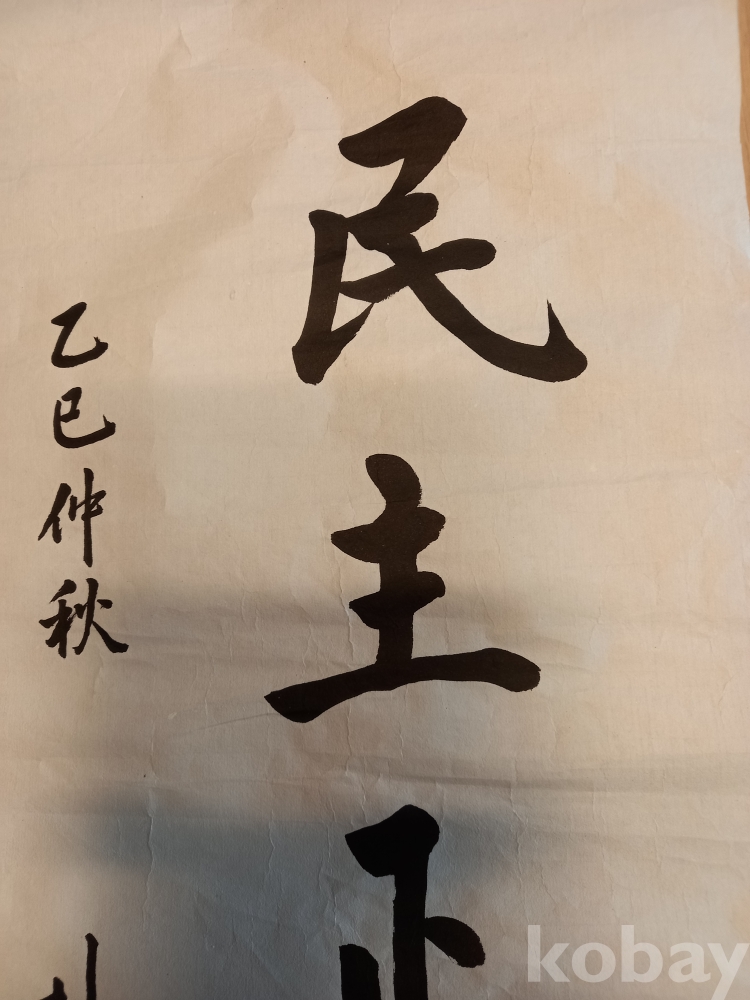 民主正
乙巳仲秋
kobay